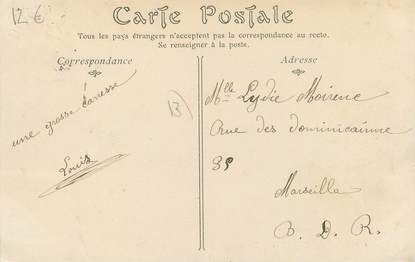 12 €
Carte Postale
Tous les pays étrangers n'acceptent pas la correspondance au recto.
Se renseigner à la poste.
Correspondance
Adresse
une grosse
Louis
13
Mlle Lydie Moirenc
Rue des dominicainne
35
Marseille
B. D. R.